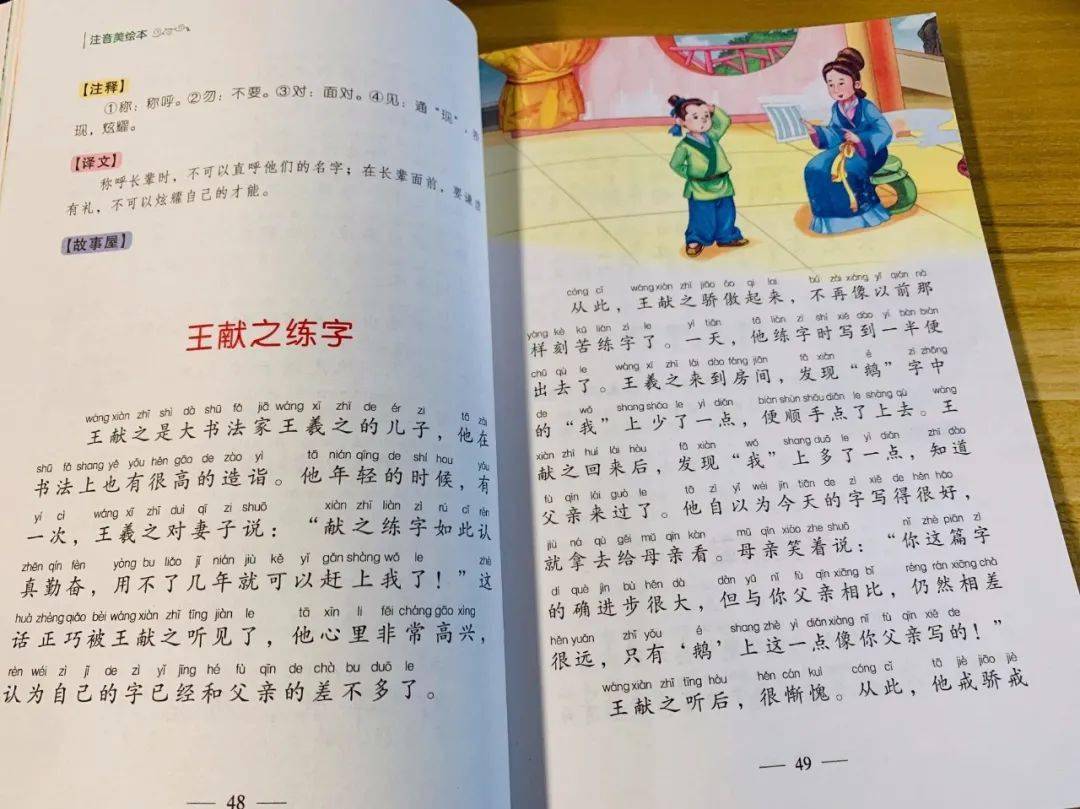 注音美绘本
【注释】
①称：称呼。②勿：不要。③对：面对。④见：通“现”，
现，炫耀。
【译文】
称呼长辈时，不可以直呼他们的名字；在长辈面前，要谦虚
有礼，不可以炫耀自己的才能。
【故事屋】
王献之练字
wáng xiàn zhī shì dà shū fǎ jiā wáng xī zhī de ér zi tā zài
王献之是大书法家王羲之的儿子，他在
shū fǎ shang yě yǒu hěn gāo de zào yì tā nián qīng de shí hou yǒu
书法上也有很高的造诣。他年轻的时候，有
yí cì wáng xī zhī duì qī zi shuō xiàn zhī liàn zì rú cǐ rèn
一次，王羲之对妻子说：“献之练字如此认
zhēn qín fèn yòng bu liǎo jǐ nián jiù kě yǐ gǎn shàng wǒ le zhè
真勤奋，用不了几年就可以赶上我了！”这
huà zhèng qiǎo bèi wáng xiàn zhī tīng jiàn le tā xīn li fēi cháng gāo xìng
话正巧被王献之听见了，他心里非常高兴，
rèn wéi zì jǐ de zì yǐ jīng hé fù qīn de chà bu duō le
认为自己的字已经和父亲的差不多了。
48
cóng cǐ wáng xiàn zhī jiāo ào qi lai bú zài xiàng yǐ qián nà
从此，王献之骄傲起来，不再像以前那
yàng kè kǔ liàn zì le yì tiān tā liàn zì shí xiě dào yí bàn biàn
样刻苦练字了。一天，他练字时写到一半便
chū qù le wáng xī zhī lái dào fáng jiān fā xiàn é zì zhōng
出去了。王羲之来到房间，发现“鹅”字中
de wǒ shang shǎo le yì diǎn biàn shùn shǒu diǎn le shàng qù wáng
的“我”上少了一点，便顺手点了上去。王
xiàn zhī huí lái hòu fā xiàn wǒ shang duō le yì diǎn zhī dào
献之回来后，发现“我”上多了一点，知道
fù qīn lái guò le tā zì yǐ wéi jīn tiān de zì xiě de hěn hǎo
父亲来过了。他自以为今天的字写得很好，
jiù ná qù gěi mǔ qīn kàn mǔ qīn xiào zhe shuō nǐ zhè piān zì
就拿去给母亲看。母亲笑着说：“你这篇字
dí què jìn bù hěn dà dàn yǔ nǐ fù qīn xiāng bǐ réng rán xiāng chà
的确进步很大，但与你父亲相比，仍然相差
hěn yuǎn zhǐ yǒu é shang zhè yì diǎn xiàng nǐ fù qīn xiě de
很远，只有‘鹅’上这一点像你父亲写的！”
wáng xiàn zhī tīng hòu hěn cán kuì cóng cǐ tā jiè jiāo jiè
王献之听后，很惭愧。从此，他戒骄戒
49